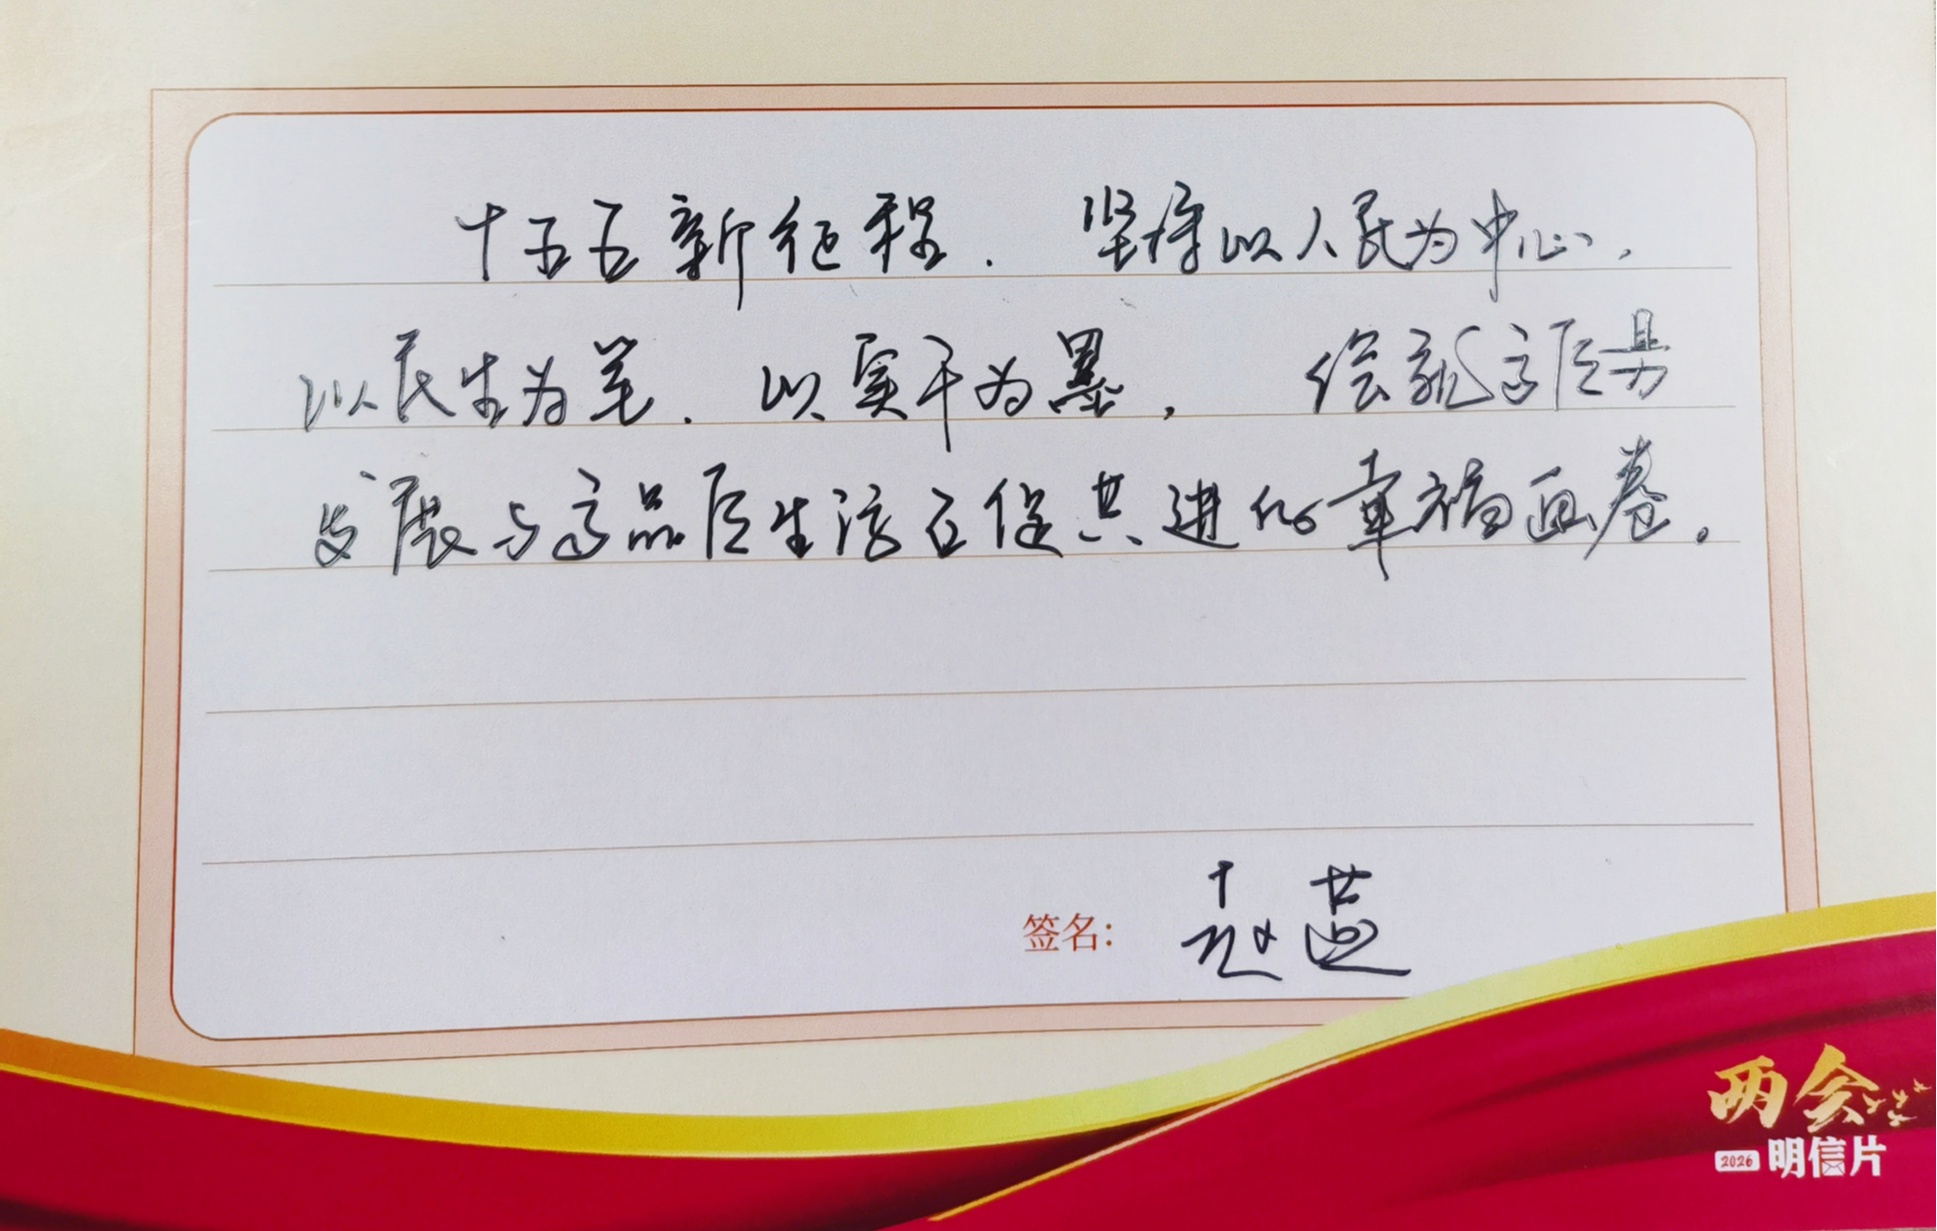 十五五新征程. 坚持以人民为中心,
以民生为笔. 以实干为墨, 绘就高质量
发展与高品质生活互促共进的幸福画卷。
签名: 赵
两会
2026 明信片